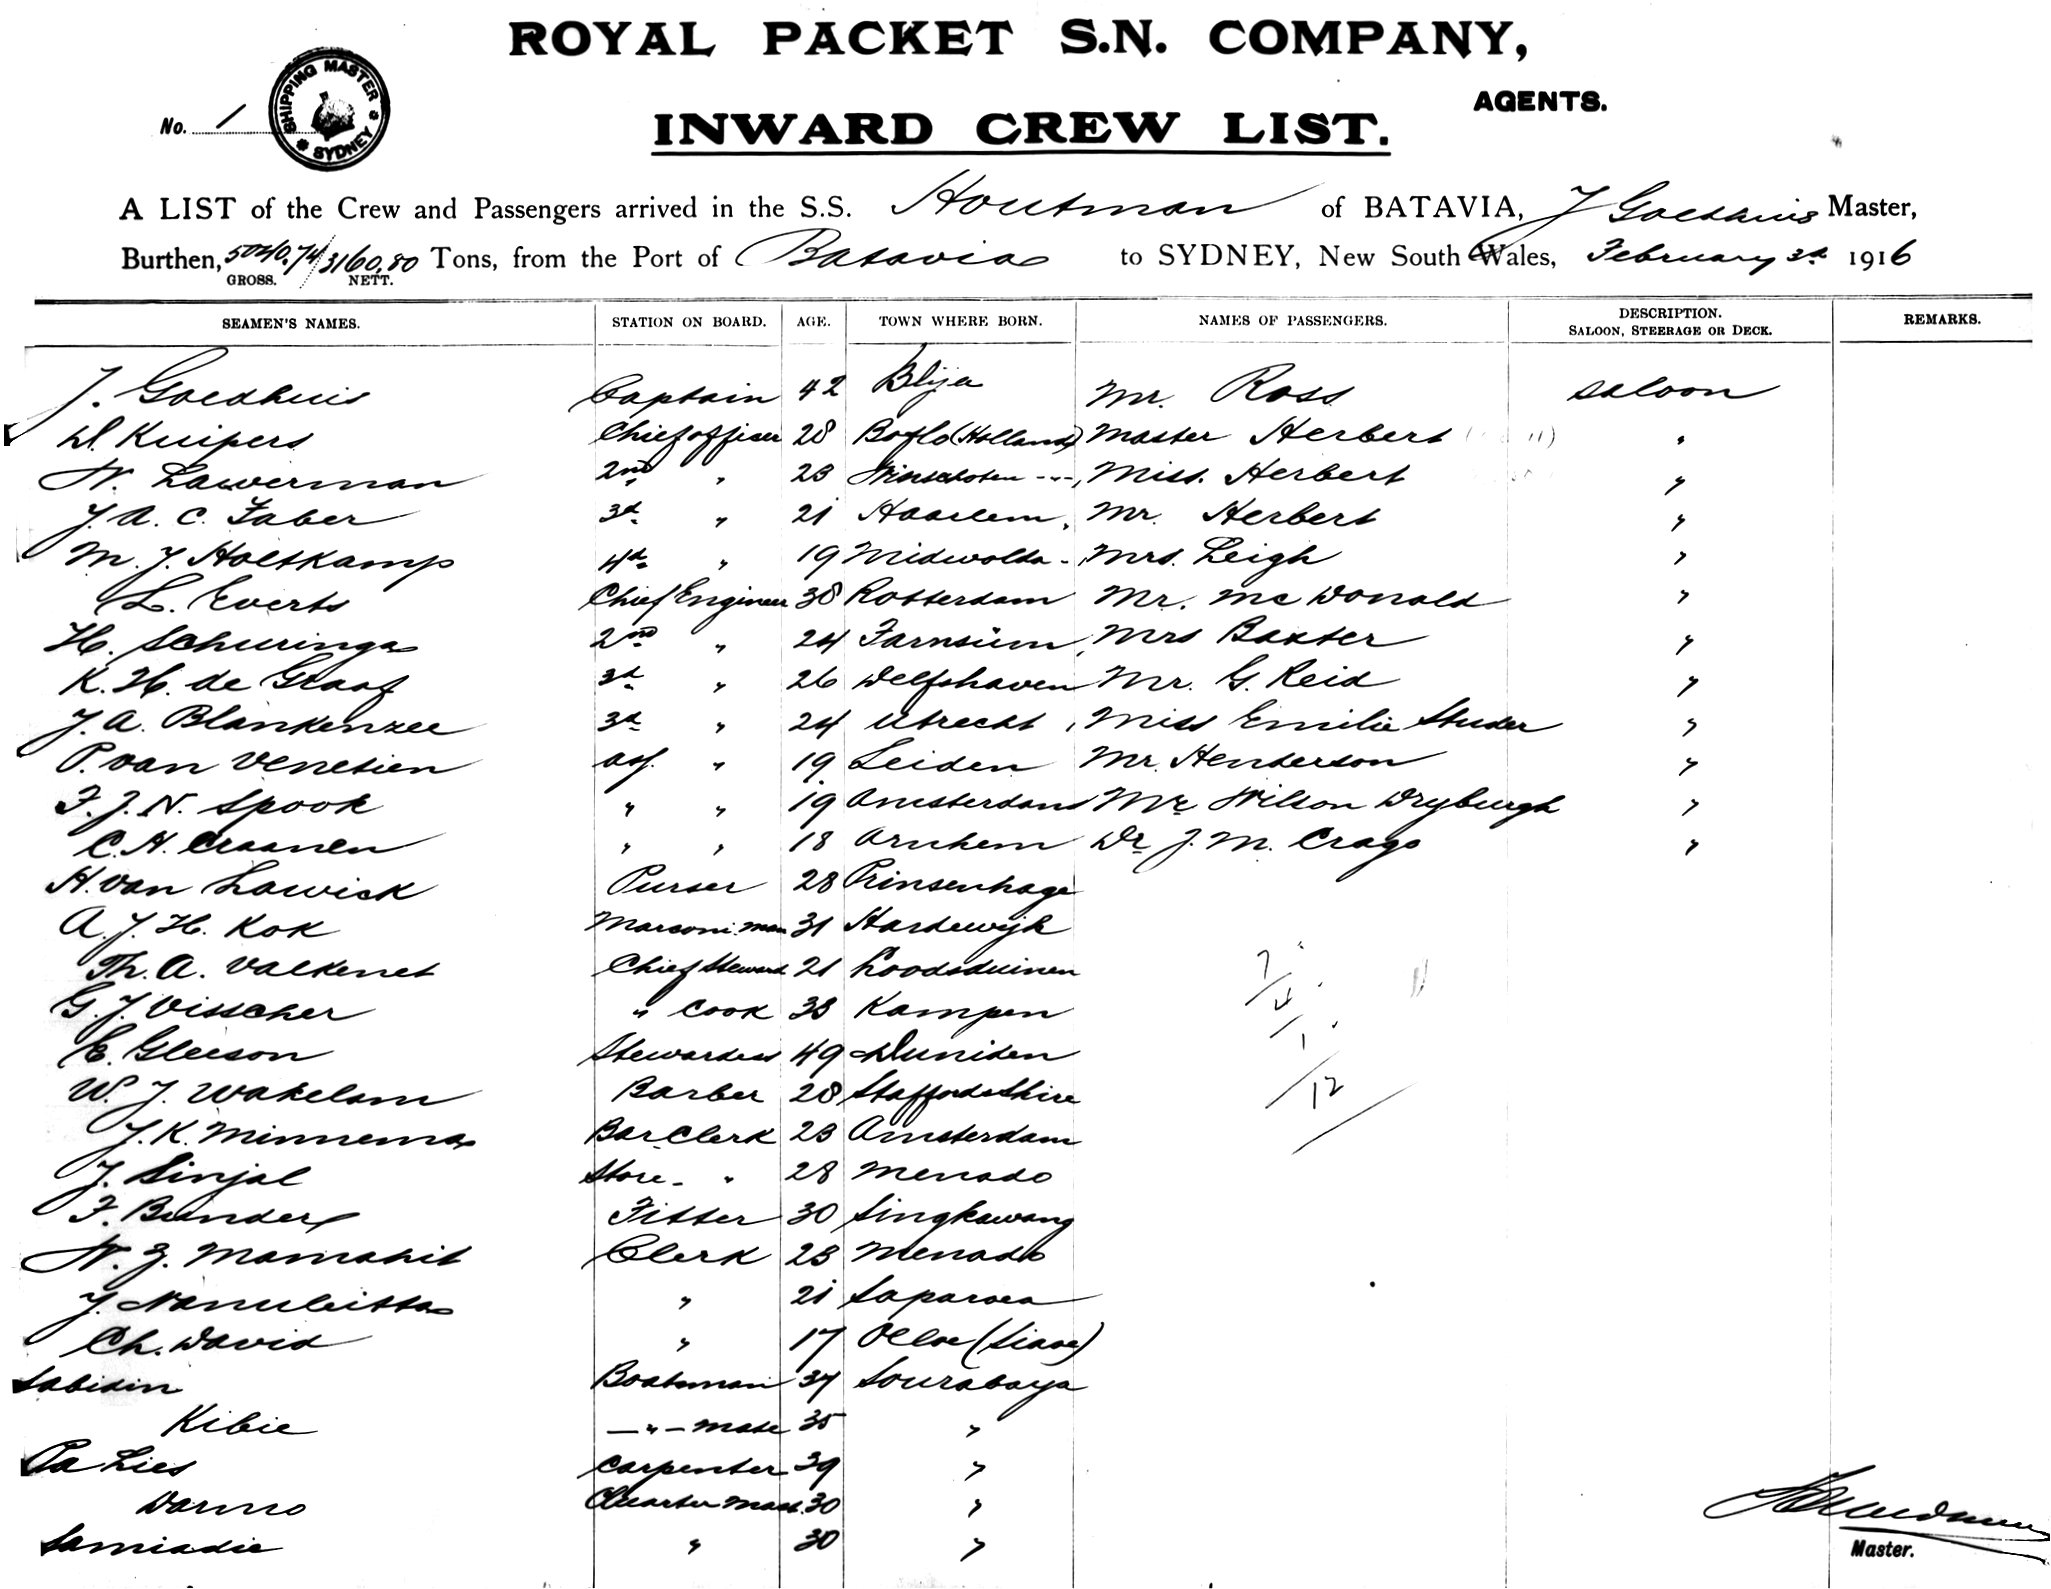 ROYAL PACKET S.N. COMPANY,
AGENTS.
No. 1
SHIPPING MASTER SYDNEY
INWARD CREW LIST.
A LIST of the Crew and Passengers arrived in the S.S. Houtman of BATAVIA, J Goedhuis Master,
Burthen, 5040,74/3160,80 Tons, from the Port of Batavia to SYDNEY, New South Wales, February 3d 1916
GROSS. NETT.
SEAMEN'S NAMES. STATION ON BOARD. AGE. TOWN WHERE BORN. NAMES OF PASSENGERS. DESCRIPTION. SALOON, STEERAGE OR DECK. REMARKS.
J. Goedhuis Captain 42 Blija Mr. Ross Saloon
D. Kuipers Chief officer 28 (Holland) Master Herbert "
N. Lawerman 2nd " 23 Winschoten -"-, Miss. Herbert "
J. A. C. Faber 3d " 21 Haarlem, Mr. Herbert "
M. J. Holtkamp 4th " 19 Midwolda -, Mrs. Leigh "
L. Everts Chief Engineer 38 Rotterdam Mr. Mc Donald "
H. Schuringa 2nd " 24 Farnsüm, Mrs Baxter "
K. H. de Graaf 3d " 26 Delfshaven Mr. G. Reid "
J. A. Blankenzee 3d " 24 Utrecht, Miss Emilie Studer "
P. van Venetien " 19 Leiden Mr. Henderson "
F. J. N. Spook " " 19 Amsterdam Mr Wilson Dryburgh "
C. H. Craanen " " 18 Arnhem Dr J. M. Crago "
H. van Lawick Purser 28 Prinsenhage
A. J. H. Kok Marconi.man 31 Hardewijk
Th. A. Valkenet Chief Steward 21 Loosduinen
G. J. Visscher " Cook 38 Kampen
E. Gleeson Stewardess 49 Duniden
W. J. Wakelam Barber 28 StaffordsShire
12
J. K. Minnema Bar Clerk 23 Amsterdam
J. Sinjal Store- " 28 Menado
F. Bender Fitter 30 Singkawang
N. J. Mamahit Clerk 23 Menado
J. Nanuleitta " 21 Saparoea
Ch. David " 17 (Siaoe)
Sabidin Boatsman 34 Sourabaya
Kibie -"- mate 35 "
Pa Lies Carpenter 39 "
Darmo Quarter Mast. 30 "
Samiadie " 30 "
Master.